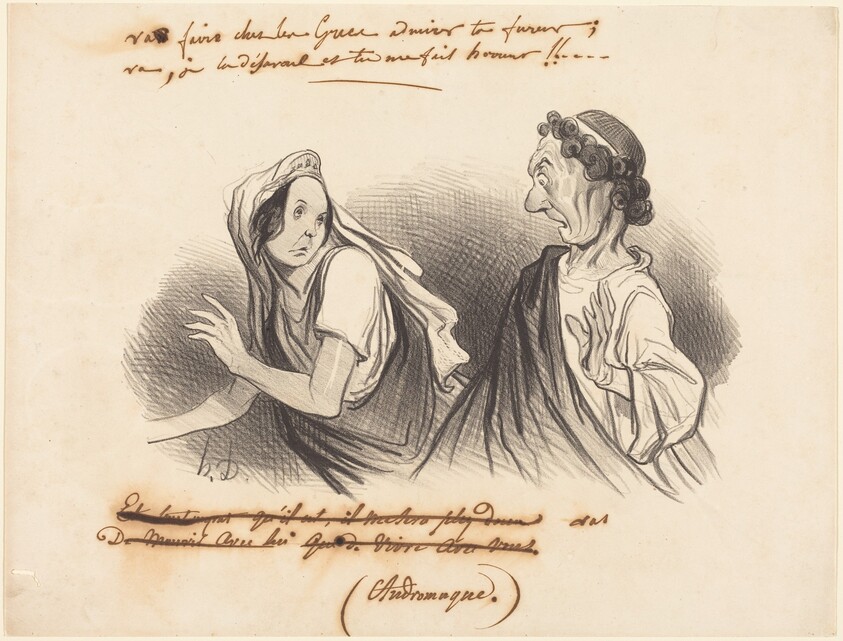 va faire chez les Grecs admirer ta fureur ;
va , je la désavoue et tu me fait horreur !!----
h. D.
Et tout ingrat qu'il est, il me sera plus doux
De Mourir Avec lui Que de Vivre Avec vous.
(Andromaque.)